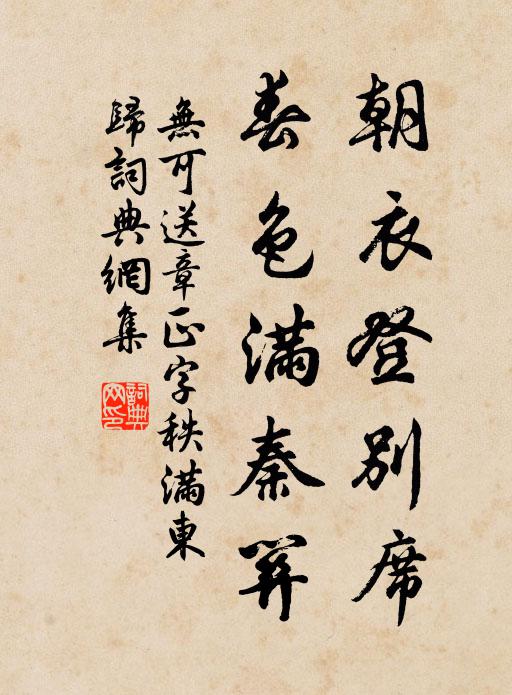 朝衣登別席
春色滿秦關
無可送章正字秩滿東
歸詞典網集
詞典網印